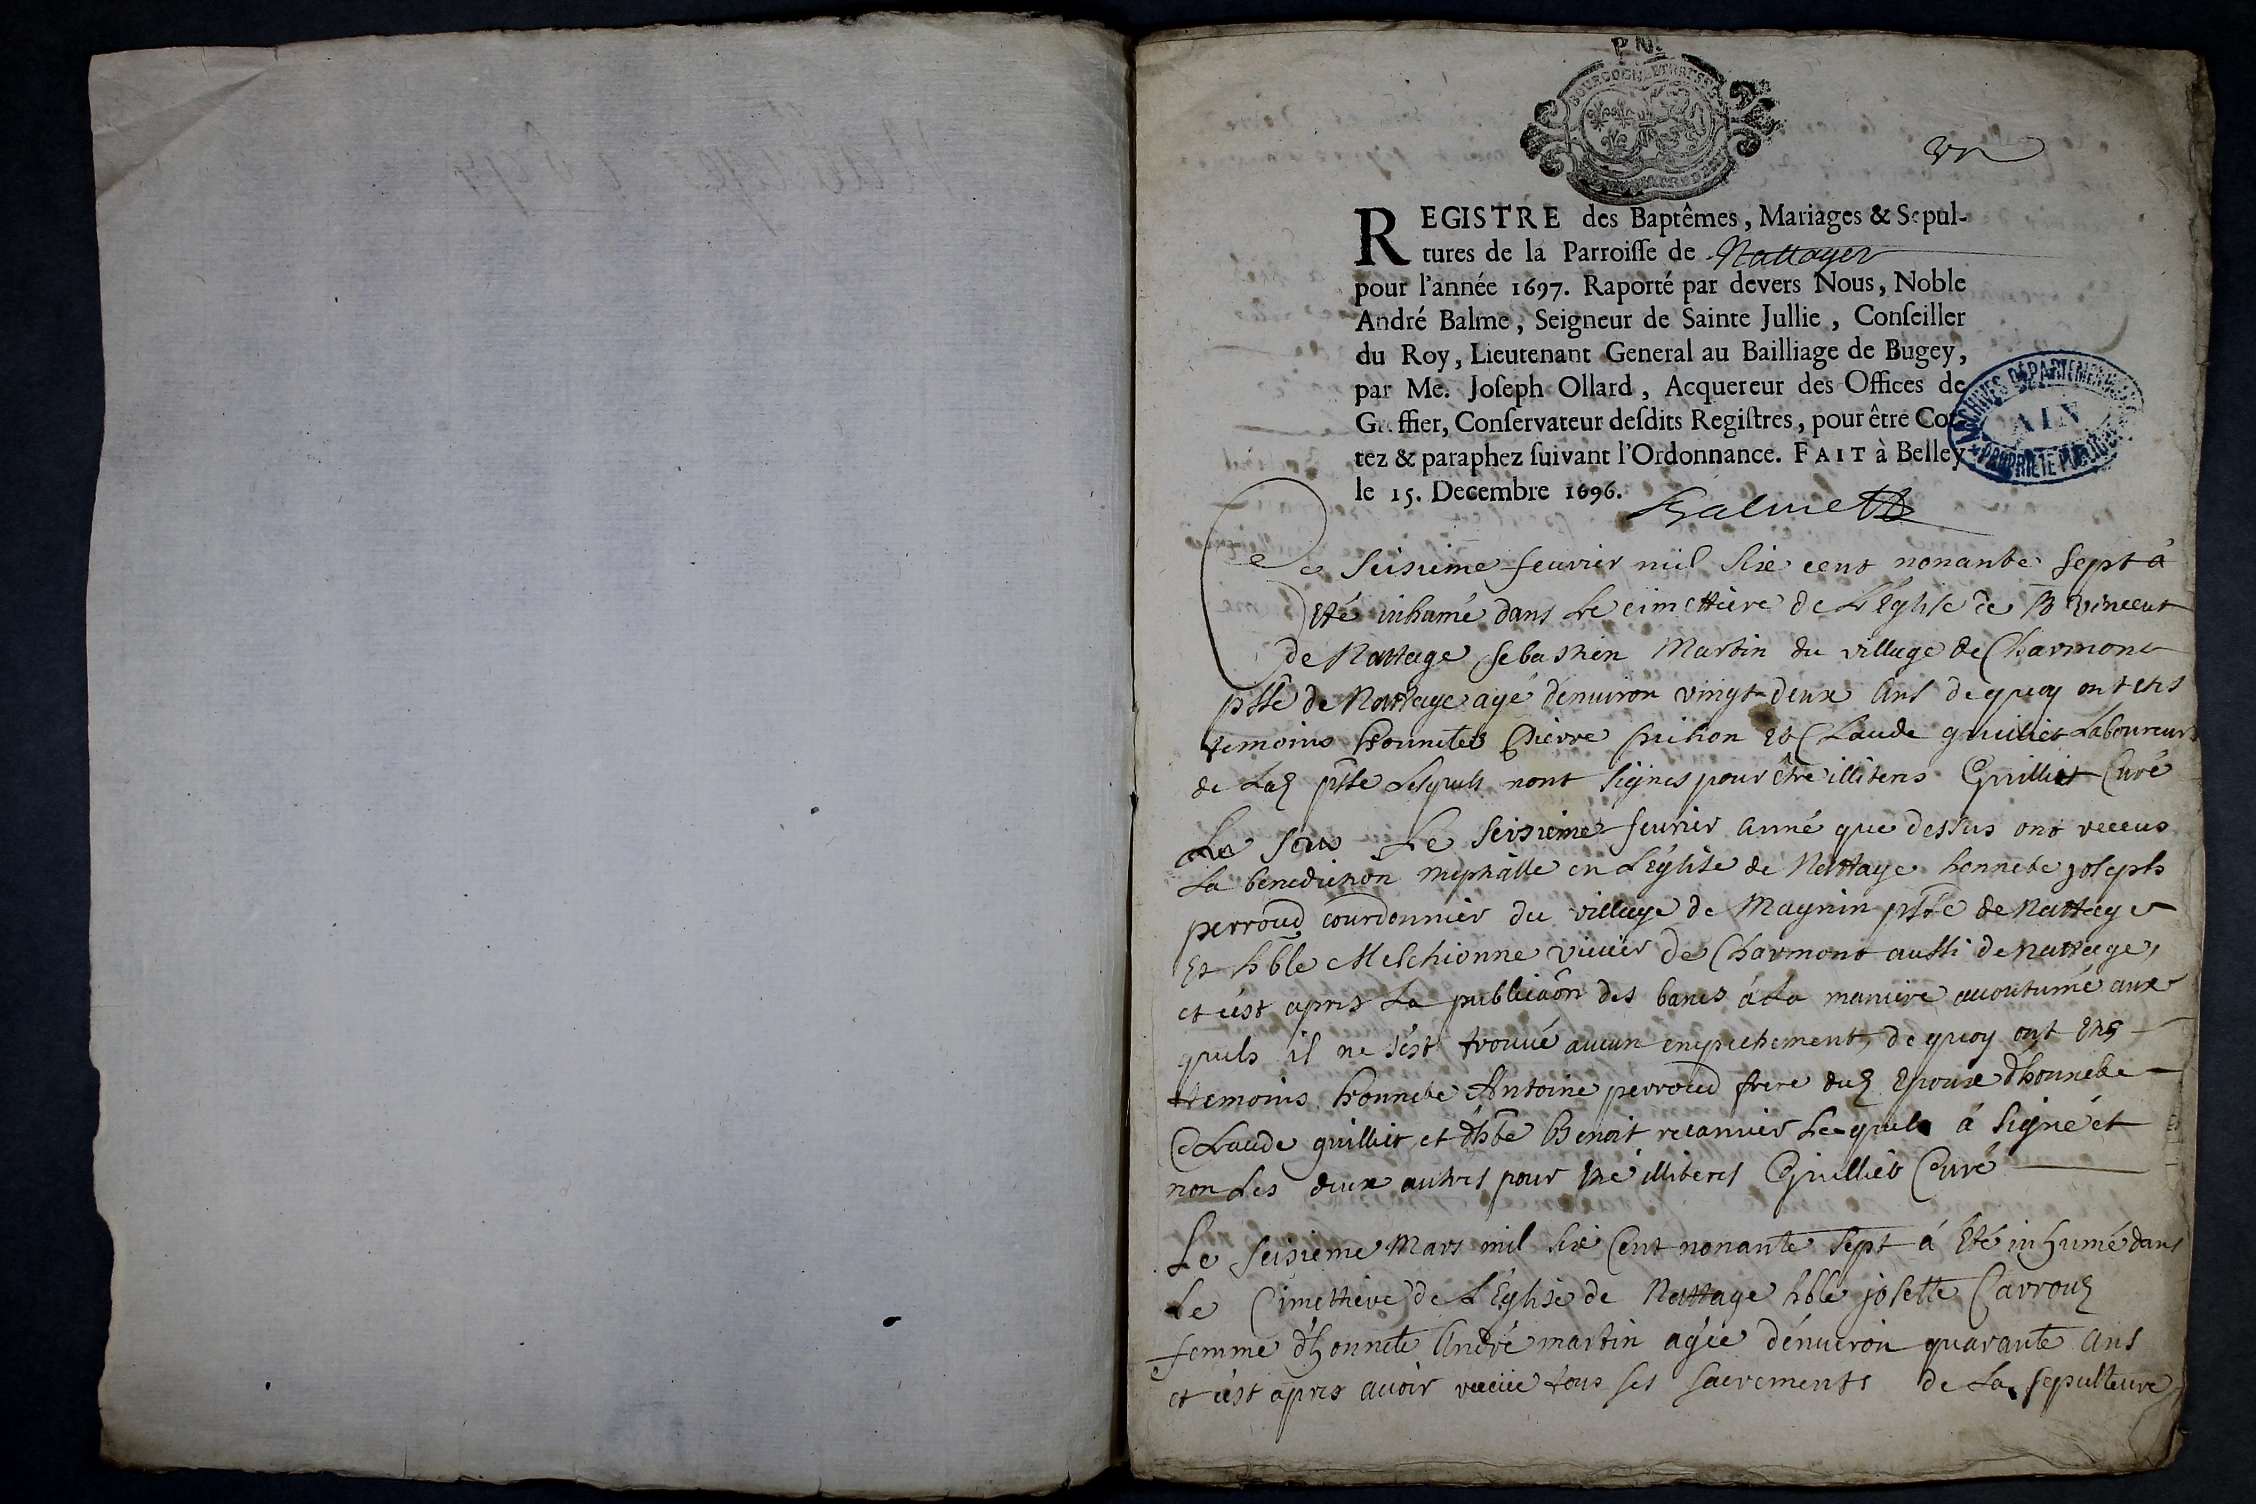 P. N.
REGISTRE des Baptêmes, Mariages & Sepul-
tures de la Parroisse de Nattages
pour l'année 1697. Raporté par devers Nous, Noble
André Balme, Seigneur de Sainte Jullie, Conseiller
du Roy, Lieutenant General au Bailliage de Bugey,
par Me. Joseph Ollard, Acquereur des Offices de
Greffier, Conservateur desdits Registres, pour être Cot-
tez & paraphez suivant l'Ordonnance. FAIT à Belley
le 15. Decembre 1696.
Balme
ARCHIVES DÉPARTEMENTALES
AIN
PROPRIÉTÉ PUBLIQUE
Ce seisieme feuvrier mil six cent nonante sept á
été inhumé dans Le cimettiere de L'Eglise de St vincent
de Nattage sebastien Martin du village de Charmont
psse de Nattage agé d'enuiron vingt deux ans de quoy ont etes
temoins honnetes Pierre et Claude guilliet Laboureurs
de Lad psse Lesquels nont signes pour être illiteres Guilliet Curé
Le Seisieme feurier anné que dessus ont receus
La benediction nuptialle en L'église de Nattage honnete joseph
perroud courdonnier du village de Magnin psse de Nattage
Et hble Melchionne viuier de Charmont aussi de nattage,
et c'est apres La publicaôn des bancs á La maniere accoutumé aux
quels il ne s'est trouué aucun empechement, de quoy ont etes
temoins honnete Antoine perroud frere dud Epoux d'honnete
Claude guilliet et d'hble Benoit Lequel á signé et
non Les deux autres pour illiteres Guilliet Curé
Le seisieme Mars mil six Cent nonante sept á Eté inhumé dans
Le Cimettiere de L'Eglise de Nattage hble josette Carroud
femme d'honnete André martin agée d'enuiron quarante ans
et c'est apres auoir receüe tous ses sacrements de La sepulteure